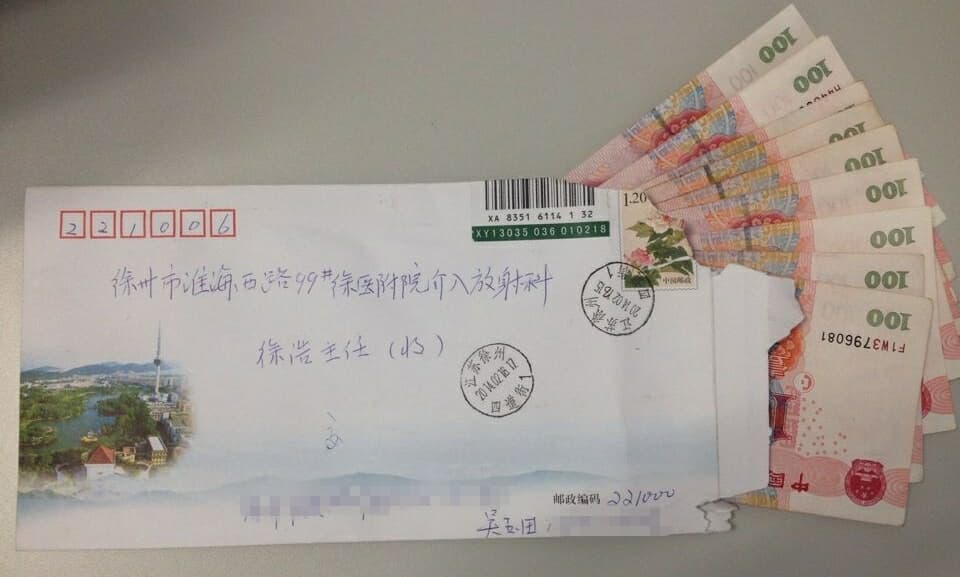 221006
XA 8351 6114 1 32
XY13035 036 010218
1.20
中国邮政
徐州市淮海西路99#徐医附院介入放射科
徐浩主任（收）
江苏徐州
2014.02.16.17
四道街1
江苏徐州
四道街1
邮政编码 221000
100
100
100
100
100
100
100
F1W3796081
中国